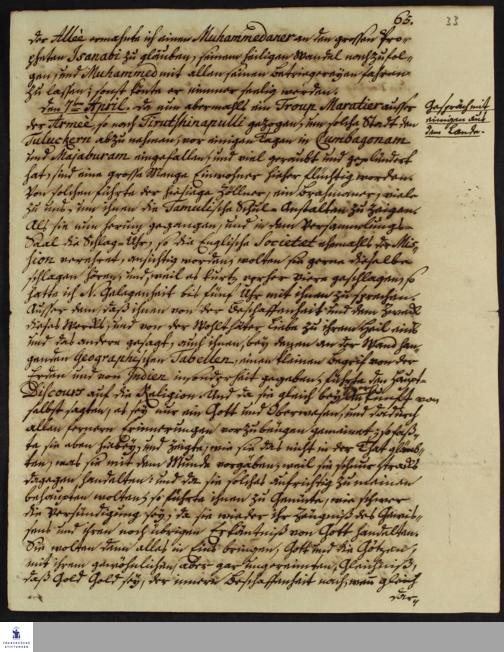 65.
33
der Allée ermahnte ich einen Muhammedaner an den grossen Pro-
pheten Isanabi zu glauben, seinem heiligen Wandel nachzufol-
gen, und Muhammed mit allen seinen Betriegereyen fahren
zu lassen; sonst könte er nimmer seelig werden.
Den 7ten April. Da nun abermahl ein Troup Maratier ausser
der Armée, so nach Tirutshinapalli gezogen, um solche Stadt den
Tuluckern abzunehmen, vor einigen Tagen in Cumbagonam
und Majaburam eingefallen, und viel geraubt und geplündert
hat, sind eine grosse Menge Einwohner hieher flüchtig worden.
Von solchen führte der hiesige Zöllner, ein Bramaner, viele
zu uns, um ihnen die Tamulische Schul-Anstalten zu zeigen.
Als sie nun herum gegangen, und in dem Versammlungs-
Saal die Schlag-Uhr, so die Englische Societät ehemahls der Mis-
sion verehret, ansichtig worden, wolten sie gerne dieselbe
schlagen hören, und, weil es kurtz vorher viere geschlagen, so
hatte ich N. Gelegenheit bis fünf Uhr mit ihnen zu sprechen.
Ausser dem, daß ihnen von der Beschaffenheit und dem Zweck
dieses Wercks, und von der Wohlthäter Liebe zu ihrem Heil eins
und das andere gesagt, auch ihnen, bey denen an der Wand han-
genden Geographischen Tabellen, einen kleinen Begrif von der
Erden und von Indien insonderheit gegeben, führte den Haupt-
Discours auf die Religion. Und da sie gleich bey der Ankunft von
selbst sagten, es sey nur ein Gott und Oberwesen, und dadurch
allen fernern Erinnerungen vorzubeugen gemeinet; so faß-
te sie eben hiebey, und zeigte, wie sie das nicht in der That glaub-
ten, was sie mit dem Munde vorgaben, weil sie schnurstracks
dagegen handelten: und da sie solches aufrichtig zu meinen
behaupten wolten; so führte ihnen zu Gemüthe, wie schwer
die Versündigung sey, da sie wieder ihr Zeugniß des Gewis-
sens und ihren noch übrigen Erkäntniß von Gott handelten.
Sie wolten denn alles in Eins bringen, Gott und die Götzen,
mit ihrem gewöhnlichen, aber gar ungereimten, Gleichniß,
daß Gold Gold sey, der innern Beschaffenheit nach, wenn gleich
Gespräch mit
einigen aus
dem Lande.